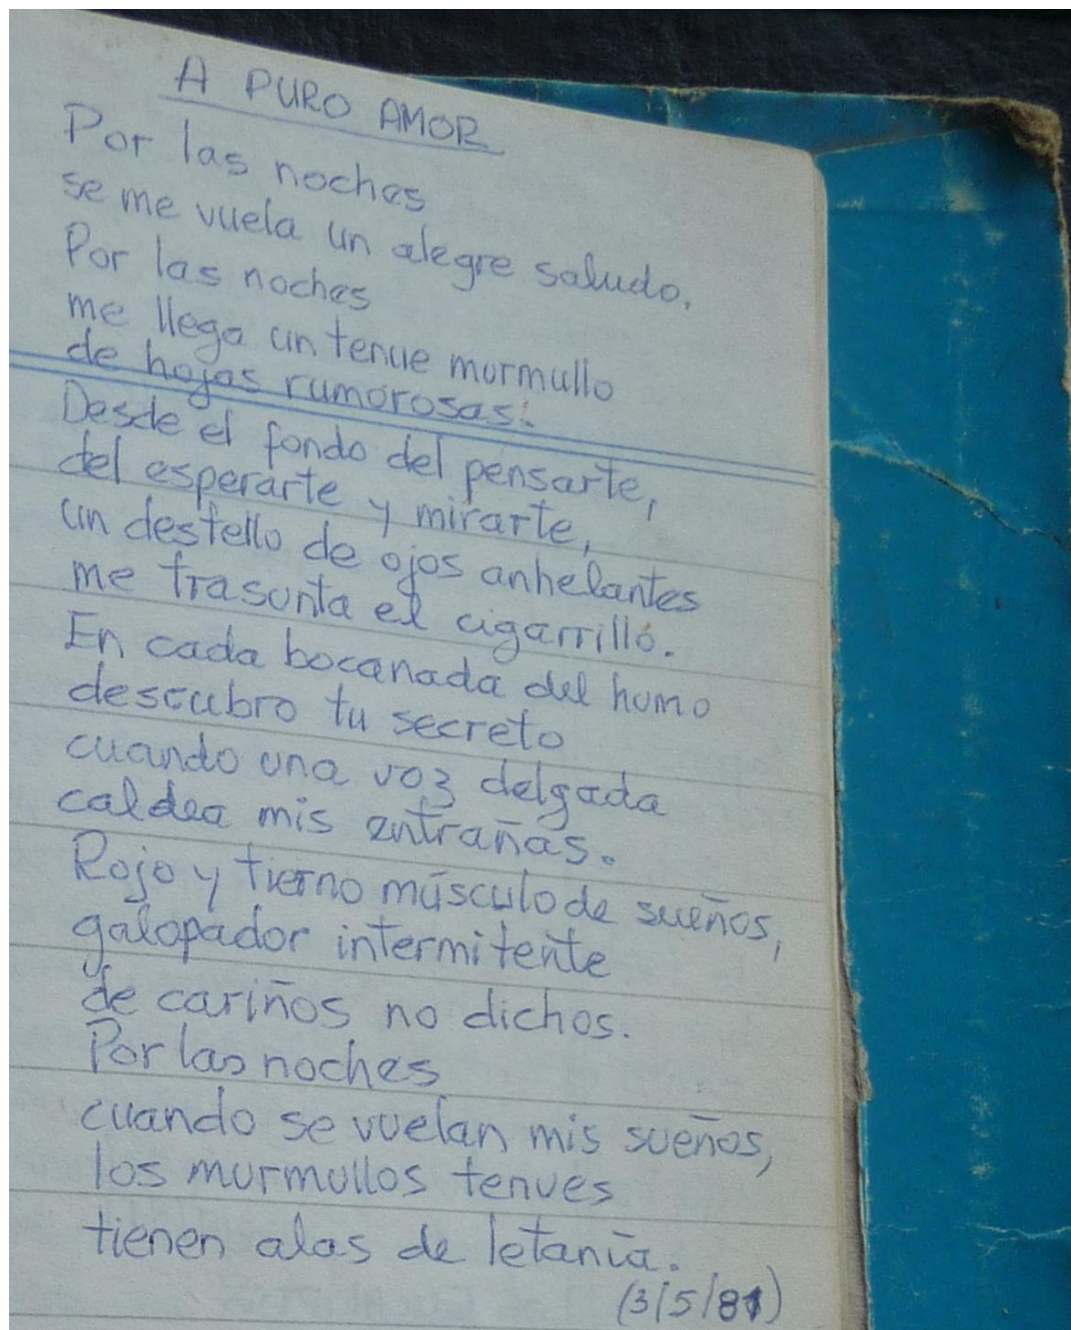 A PURO AMOR
Por las noches
se me vuela un alegre saludo.
Por las noches
me llega un tenue murmullo
de hojas rumorosas.
Desde el fondo del pensarte,
del esperarte y mirarte,
un destello de ojos anhelantes
me trasunta el cigarrillo.
En cada bocanada del humo
descubro tu secreto
cuando una voz delgada
caldea mis entrañas.
Rojo y tierno músculo de sueños,
galopador intermitente
de cariños no dichos.
Por las noches
cuando se vuelan mis sueños,
los murmullos tenues
tienen alas de letanía.
(3/5/81)